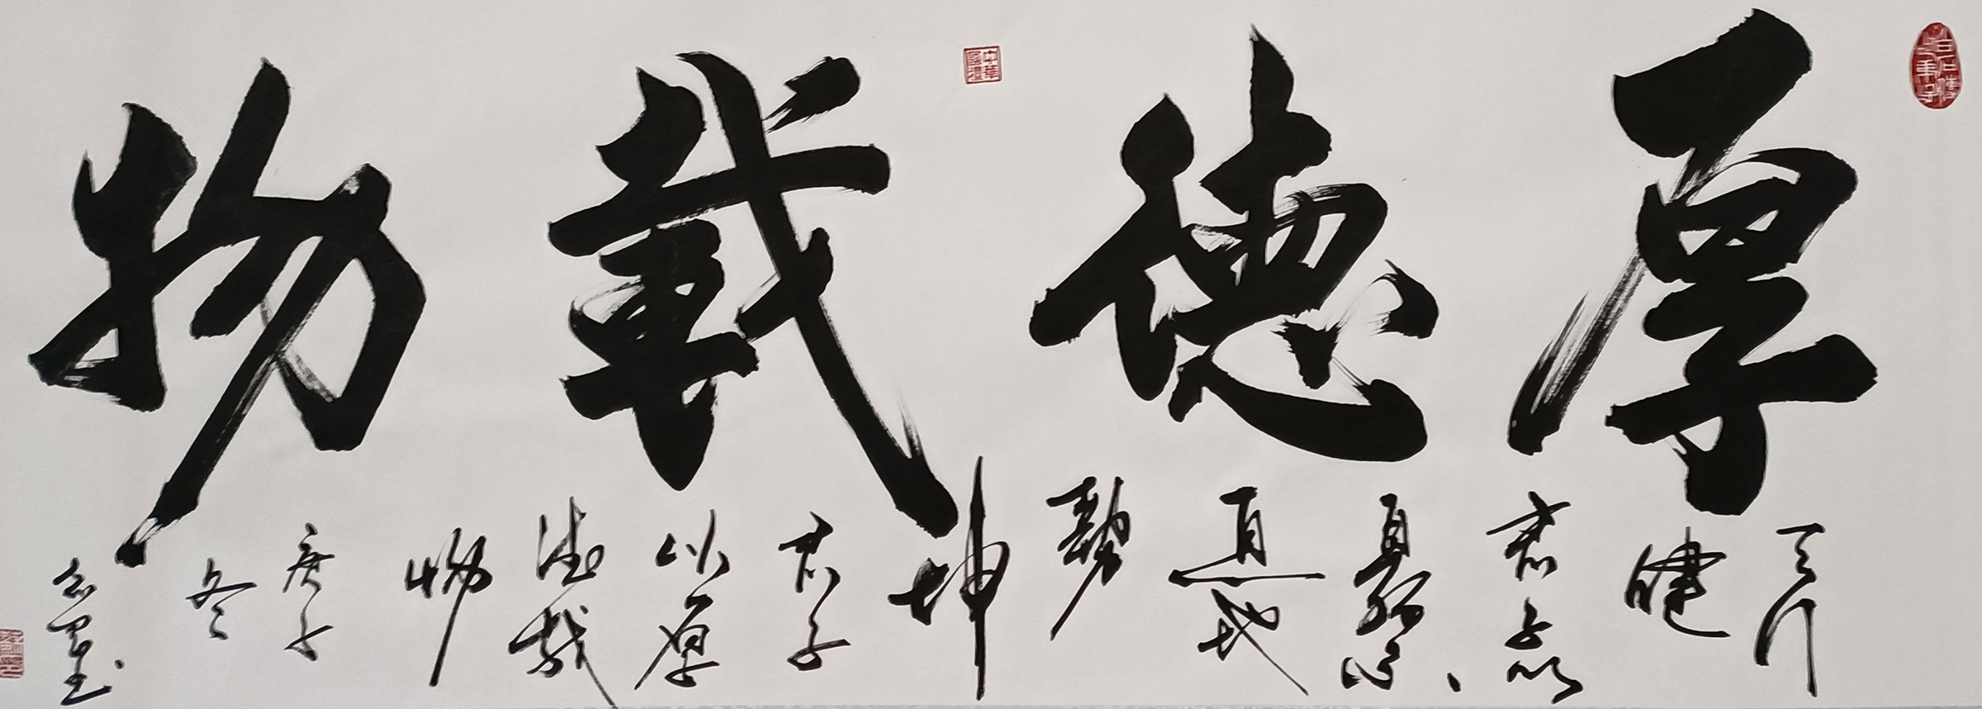 厚德載物
天行
健
君子以
自强不
息地
势
坤
君子
以厚
德载
物
庚子
冬